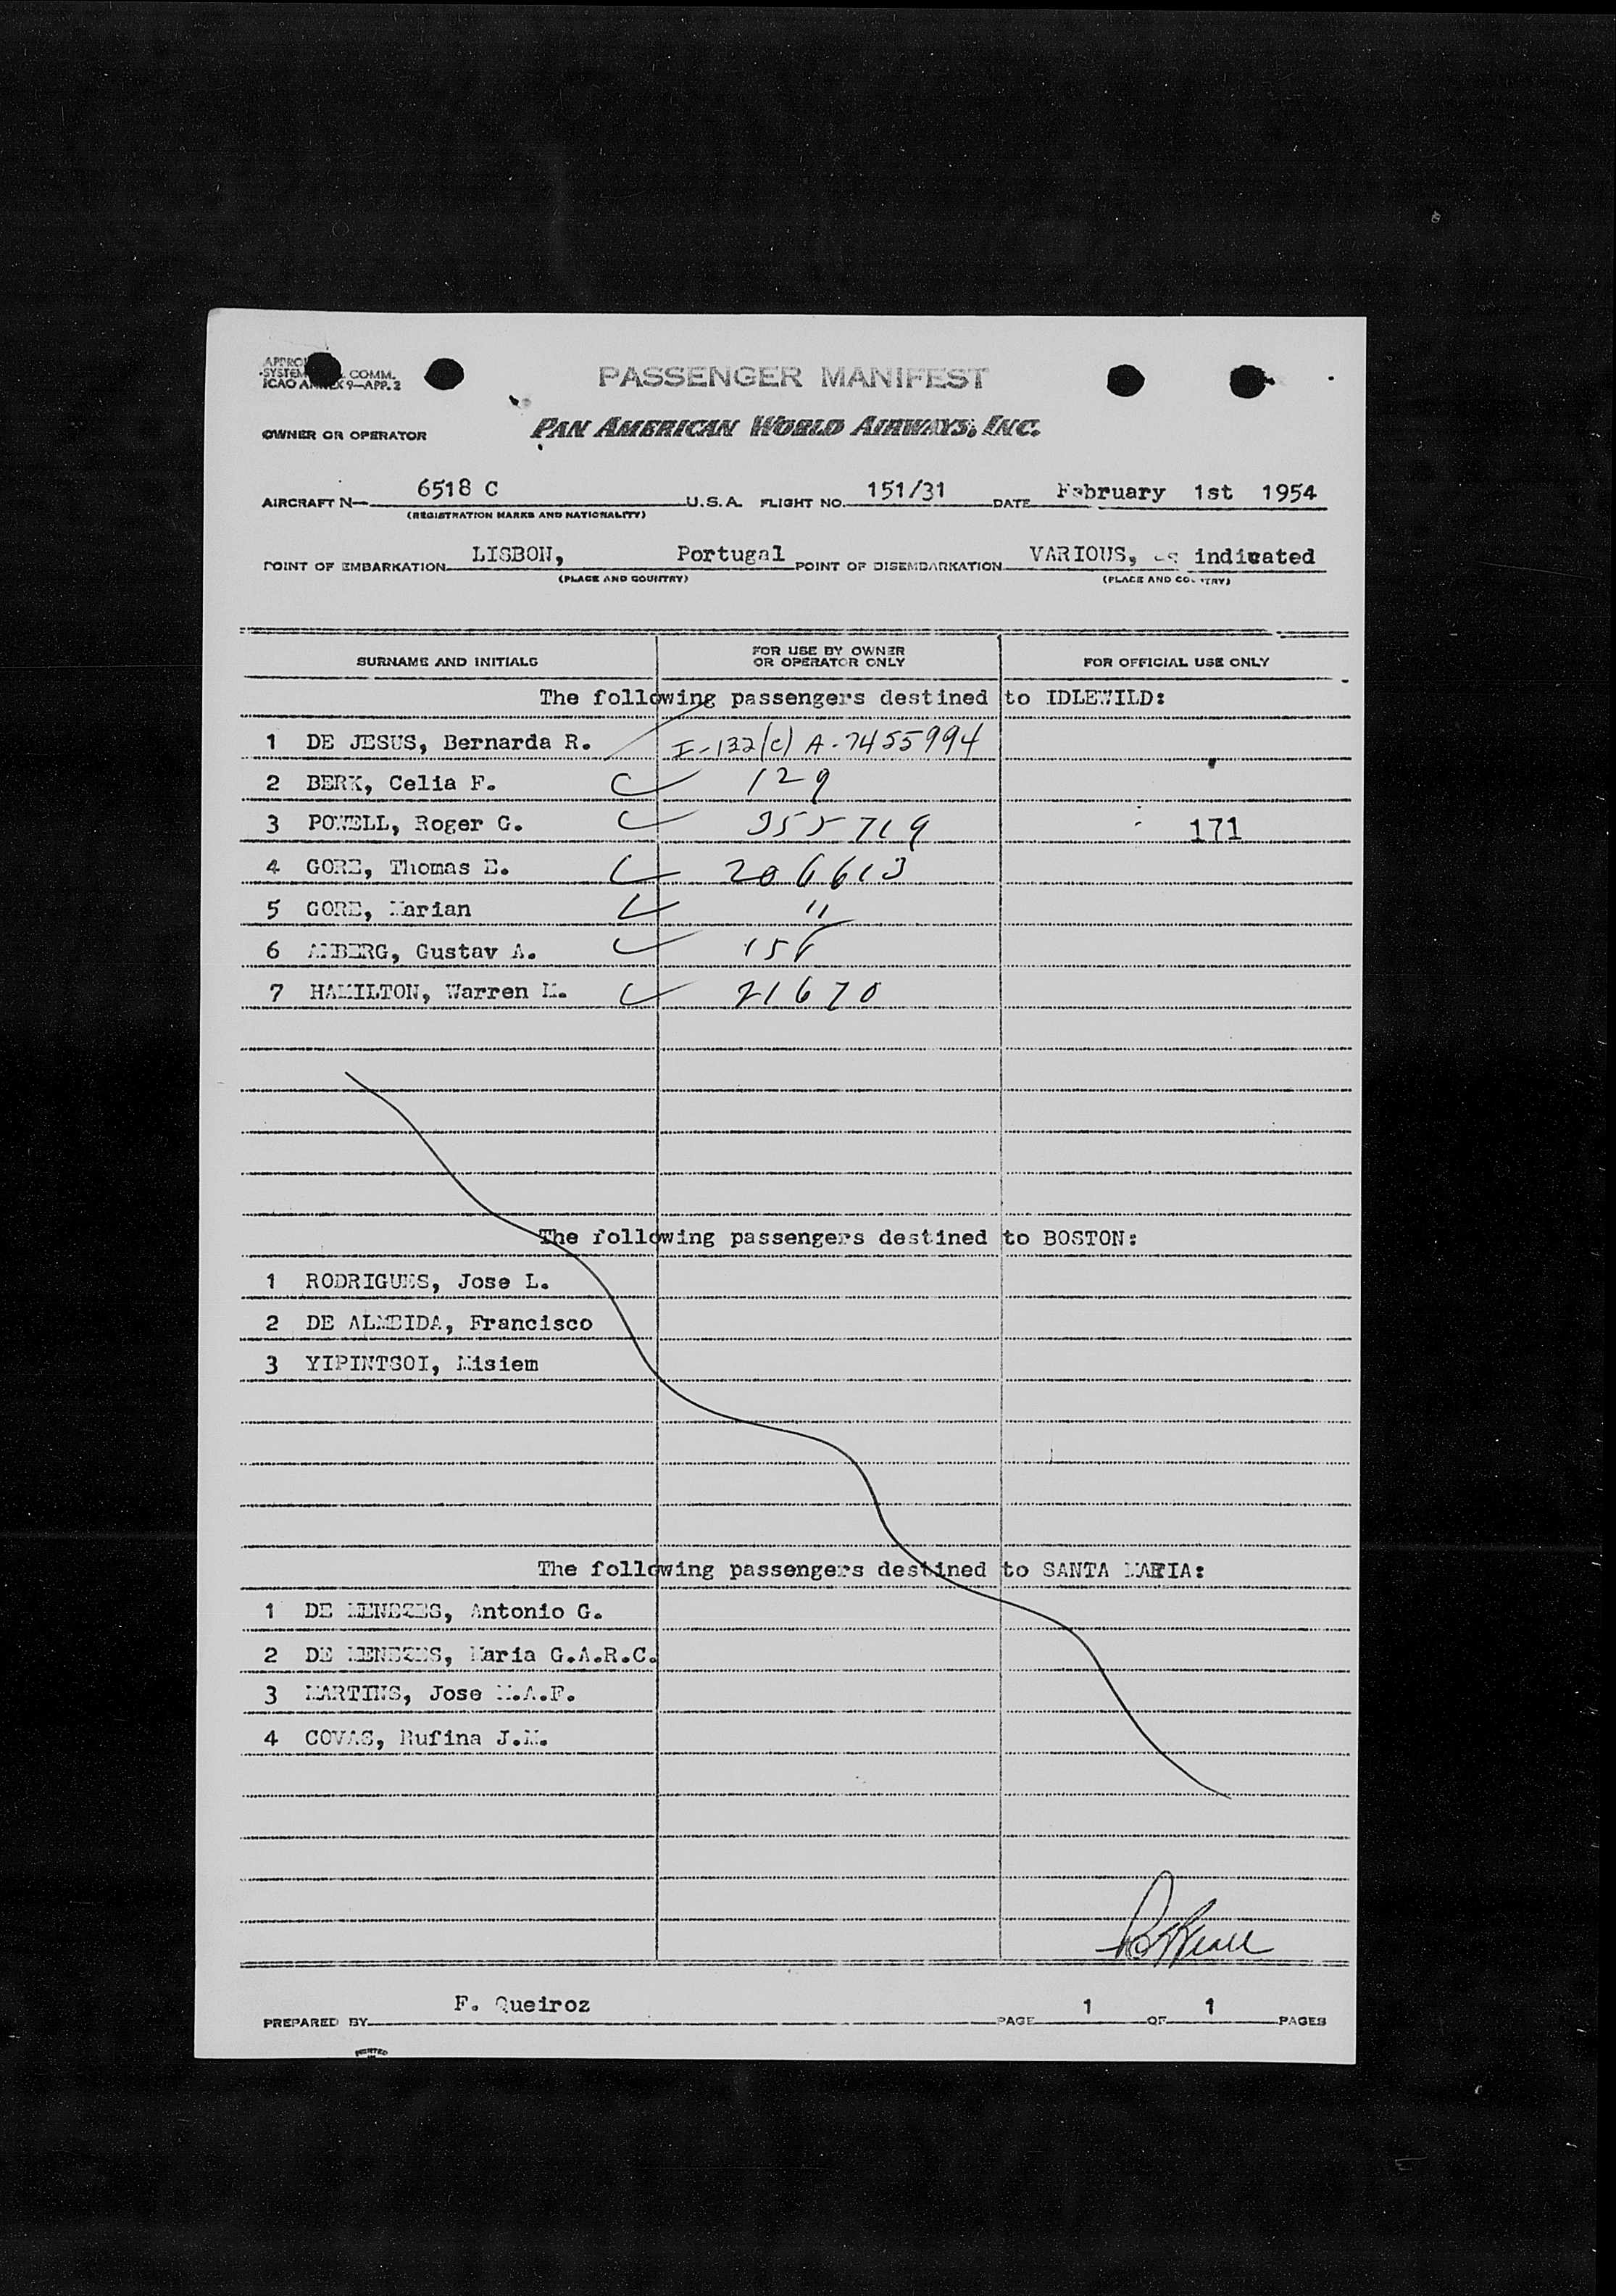 PASSENGER MANIFEST
COMM.
ICAO ANNEX 9—APP. 2
OWNER OR OPERATOR PAN AMERICAN WORLD AIRWAYS, INC.
AIRCRAFT N— 6518 C U.S.A. FLIGHT NO. 151/31 DATE February 1st 1954
(REGISTRATION MARKS AND NATIONALITY)
POINT OF EMBARKATION LISBON, Portugal POINT OF DISEMBARKATION VARIOUS, as indicated
(PLACE AND COUNTRY) (PLACE AND COUNTRY)
SURNAME AND INITIALS FOR USE BY OWNER OR OPERATOR ONLY FOR OFFICIAL USE ONLY
The following passengers destined to IDLEWILD:
1 DE JESUS, Bernarda R. I-132(c) A-7455994
2 BERK, Celia F. 129
3 POWELL, Roger G. 955719 171
4 GORE, Thomas E. 206613
5 GORE, Marian "
6 AMBERG, Gustav A. 156
7 HAMILTON, Warren M. 21670
The following passengers destined to BOSTON:
1 RODRIGUES, Jose L.
2 DE ALMEIDA, Francisco
3 YIPINTSOI, Misiem
The following passengers destined to SANTA MARIA:
1 DE MENEZES, Antonio G.
2 DE MENEZES, Maria G.A.R.C.
3 MARTINS, Jose M.A.F.
4 COVAS, Rufina J.M.
PREPARED BY F. Queiroz PAGE 1 OF 1 PAGES
PRINTED